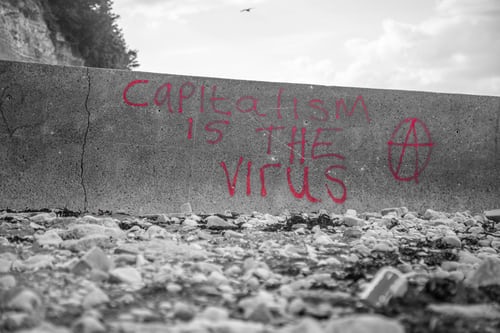 Capitalism
IS THE
VIRUS